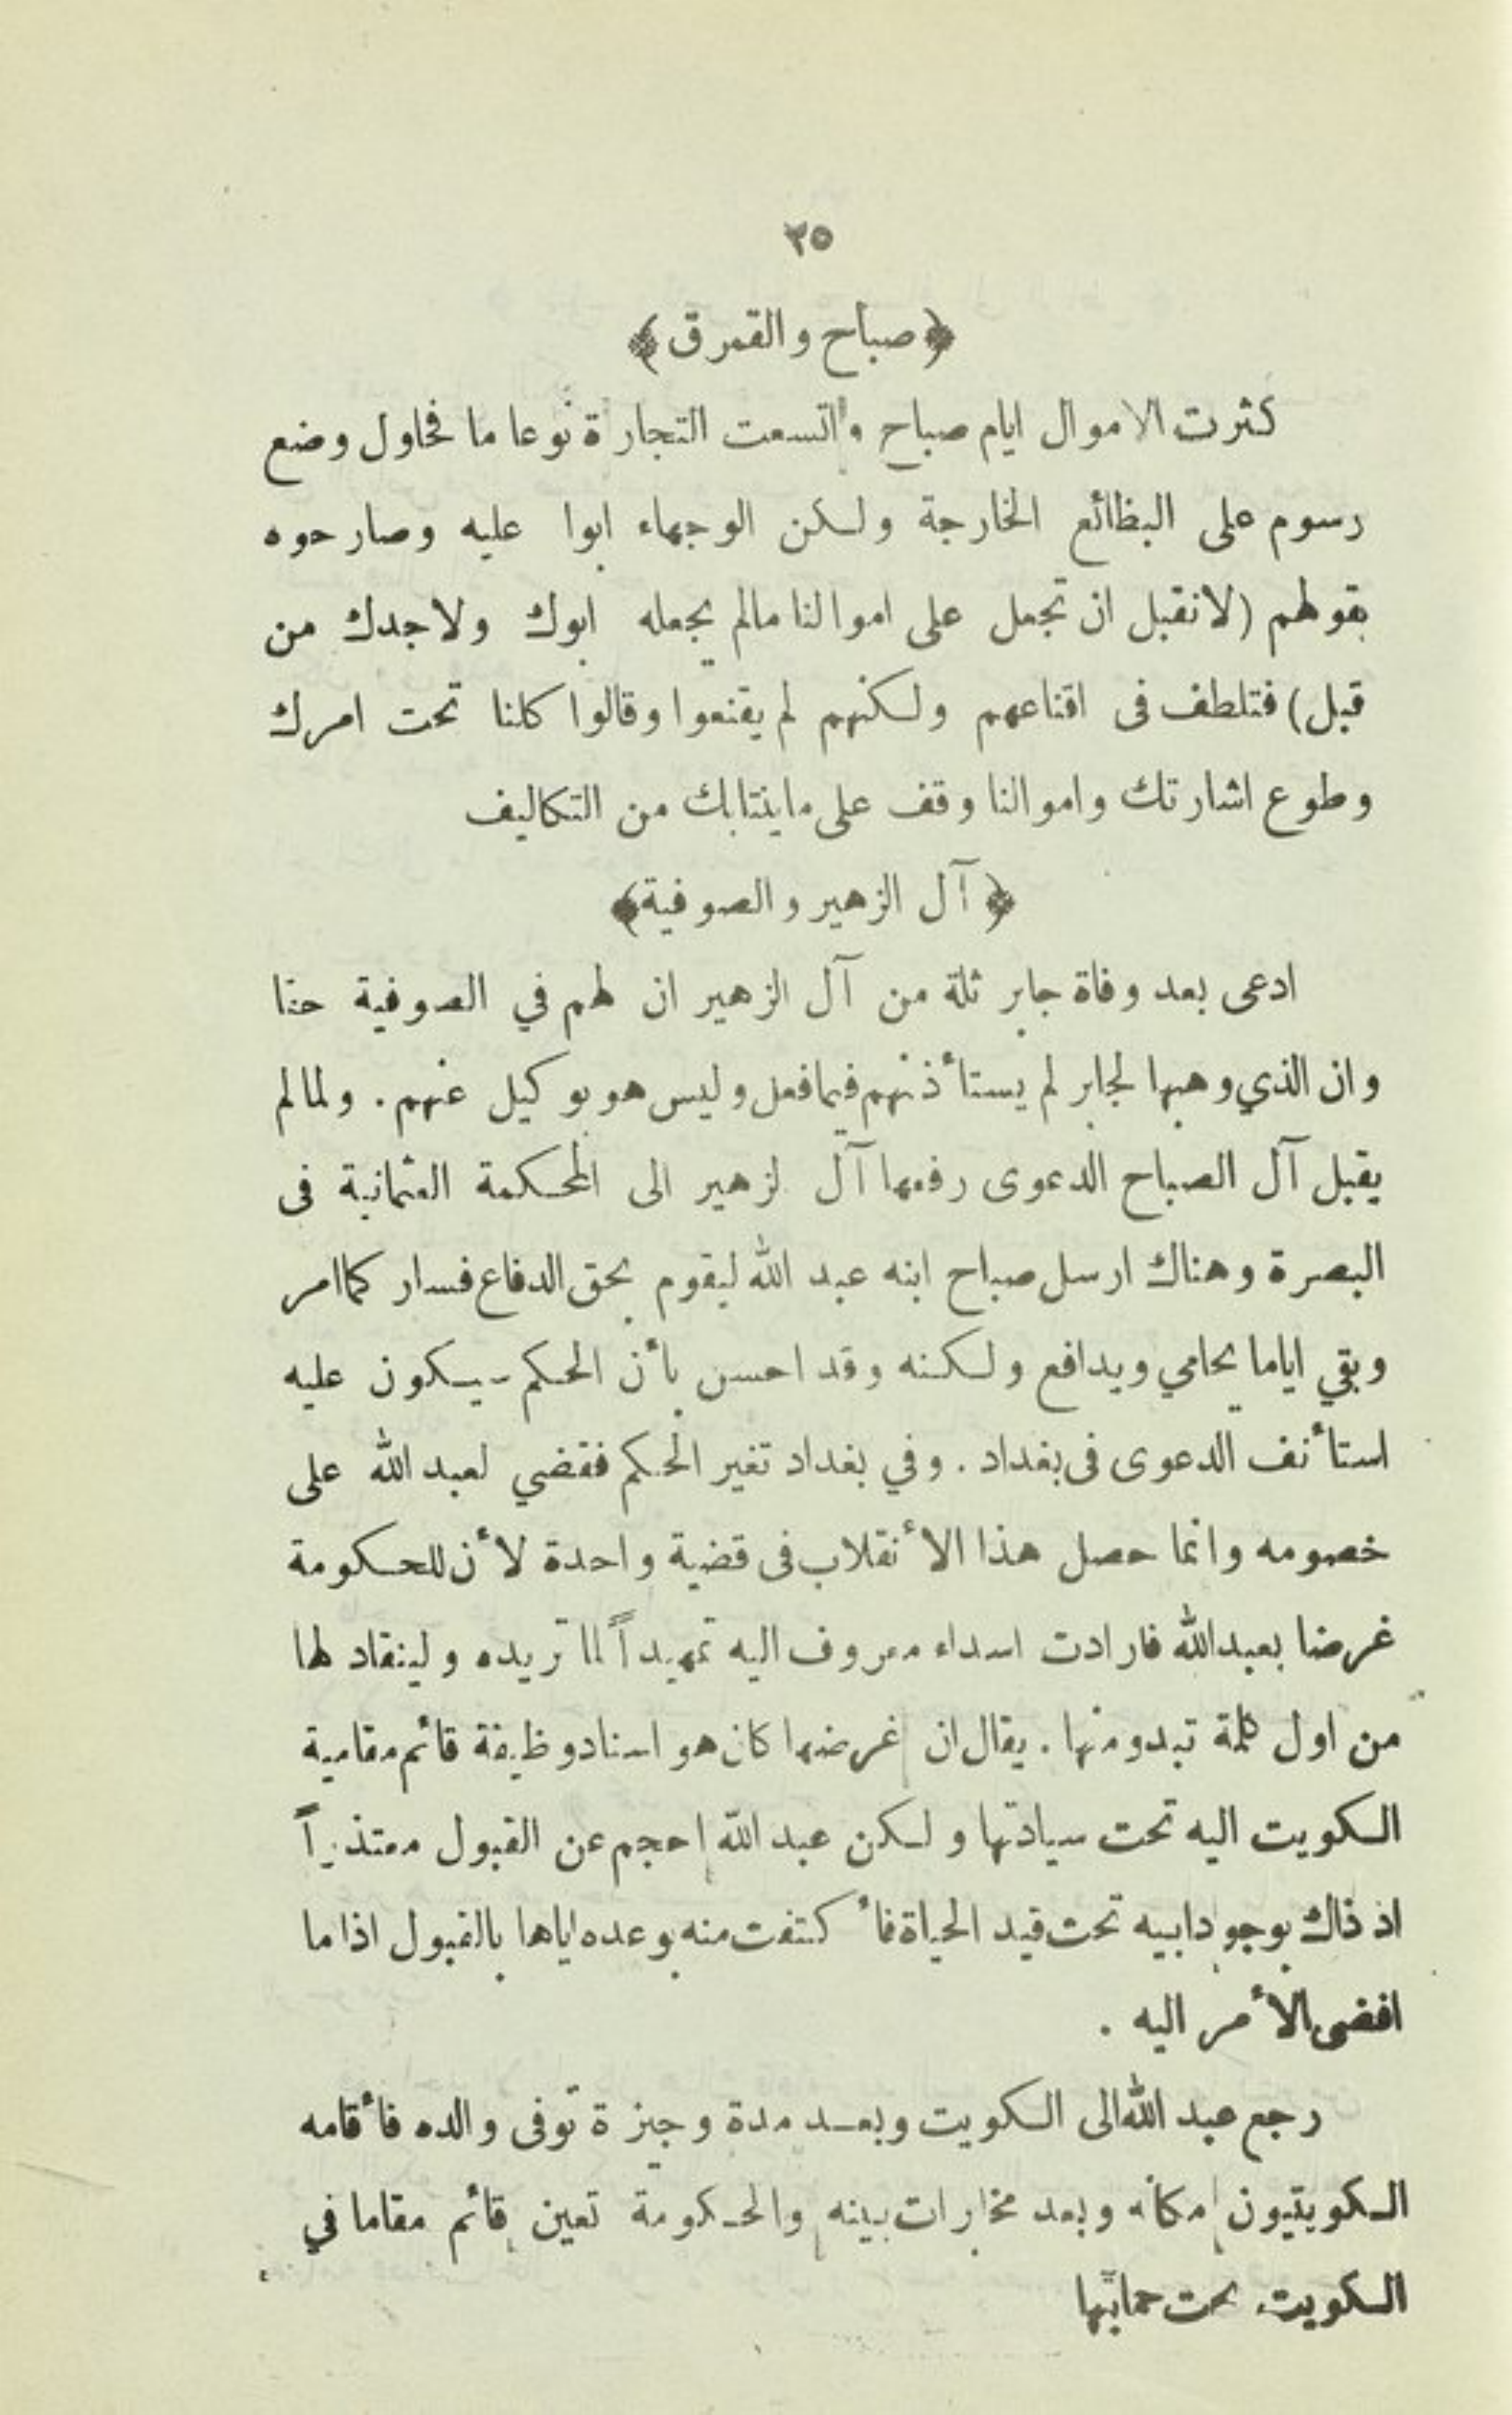 ٢٥
﴿صباح والقمرق﴾
كثرت الاموال ايام صباح واتسعت التجارة نوعا ما فحاول وضع
رسوم على البظائع الخارجة ولكن الوجهاء ابوا عليه وصارحوه
بقولهم (لانقبل ان تجعل على اموالنا مالم يجعله ابوك ولاجدك من
قبل) فتلطف فى اقناعهم ولكنهم لم يقنعوا وقالوا كلنا تحت امرك
وطوع اشارتك واموالنا وقف على ماينتابك من التكاليف
﴿آل الزهير والصوفية﴾
ادعى بعد وفاة جابر ثلة من آل الزهير ان لهم في الصوفية حقا
وان الذي وهبها لجابر لم يستأذنهم فيما فعل وليس هو بوكيل عنهم . ولما لم
يقبل آل الصباح الدعوى رفعها آل لزهير الى المحكمة العثمانية فى
البصرة وهناك ارسل صباح ابنه عبد الله ليقوم بحق الدفاع فسار كما امر
وبقي اياما يحامي ويدافع ولكنه وقد احسن بأن الحكم سيكون عليه
استأنف الدعوى فى بغداد . وفي بغداد تغير الحكم فقضي لعبد الله على
خصومه وانما حصل هذا الأنقلاب فى قضية واحدة لأن للحكومة
غرضا بعبدالله فارادت اسداء معروف اليه تمهيداً لما تريده ولينقاد لها
من اول كلمة تبدو منها . يقال ان غرضها كان هو اسناد وظيفة قائم مقامية
الكويت اليه تحت سيادتها ولكن عبد الله احجم عن القبول معتذراً
اذ ذاك بوجود ابيه تحت قيد الحياة فأكتفت منه بوعده اياها بالقبول اذا ما
افضى الأمر اليه .
رجع عبد الله الى الكويت وبعد مدة وجيزة توفى والده فأقامه
الكويتيون مكانه وبعد مخابرات بينه والحكومة تعين قائم مقاما في
الكويت تحت حمايتها